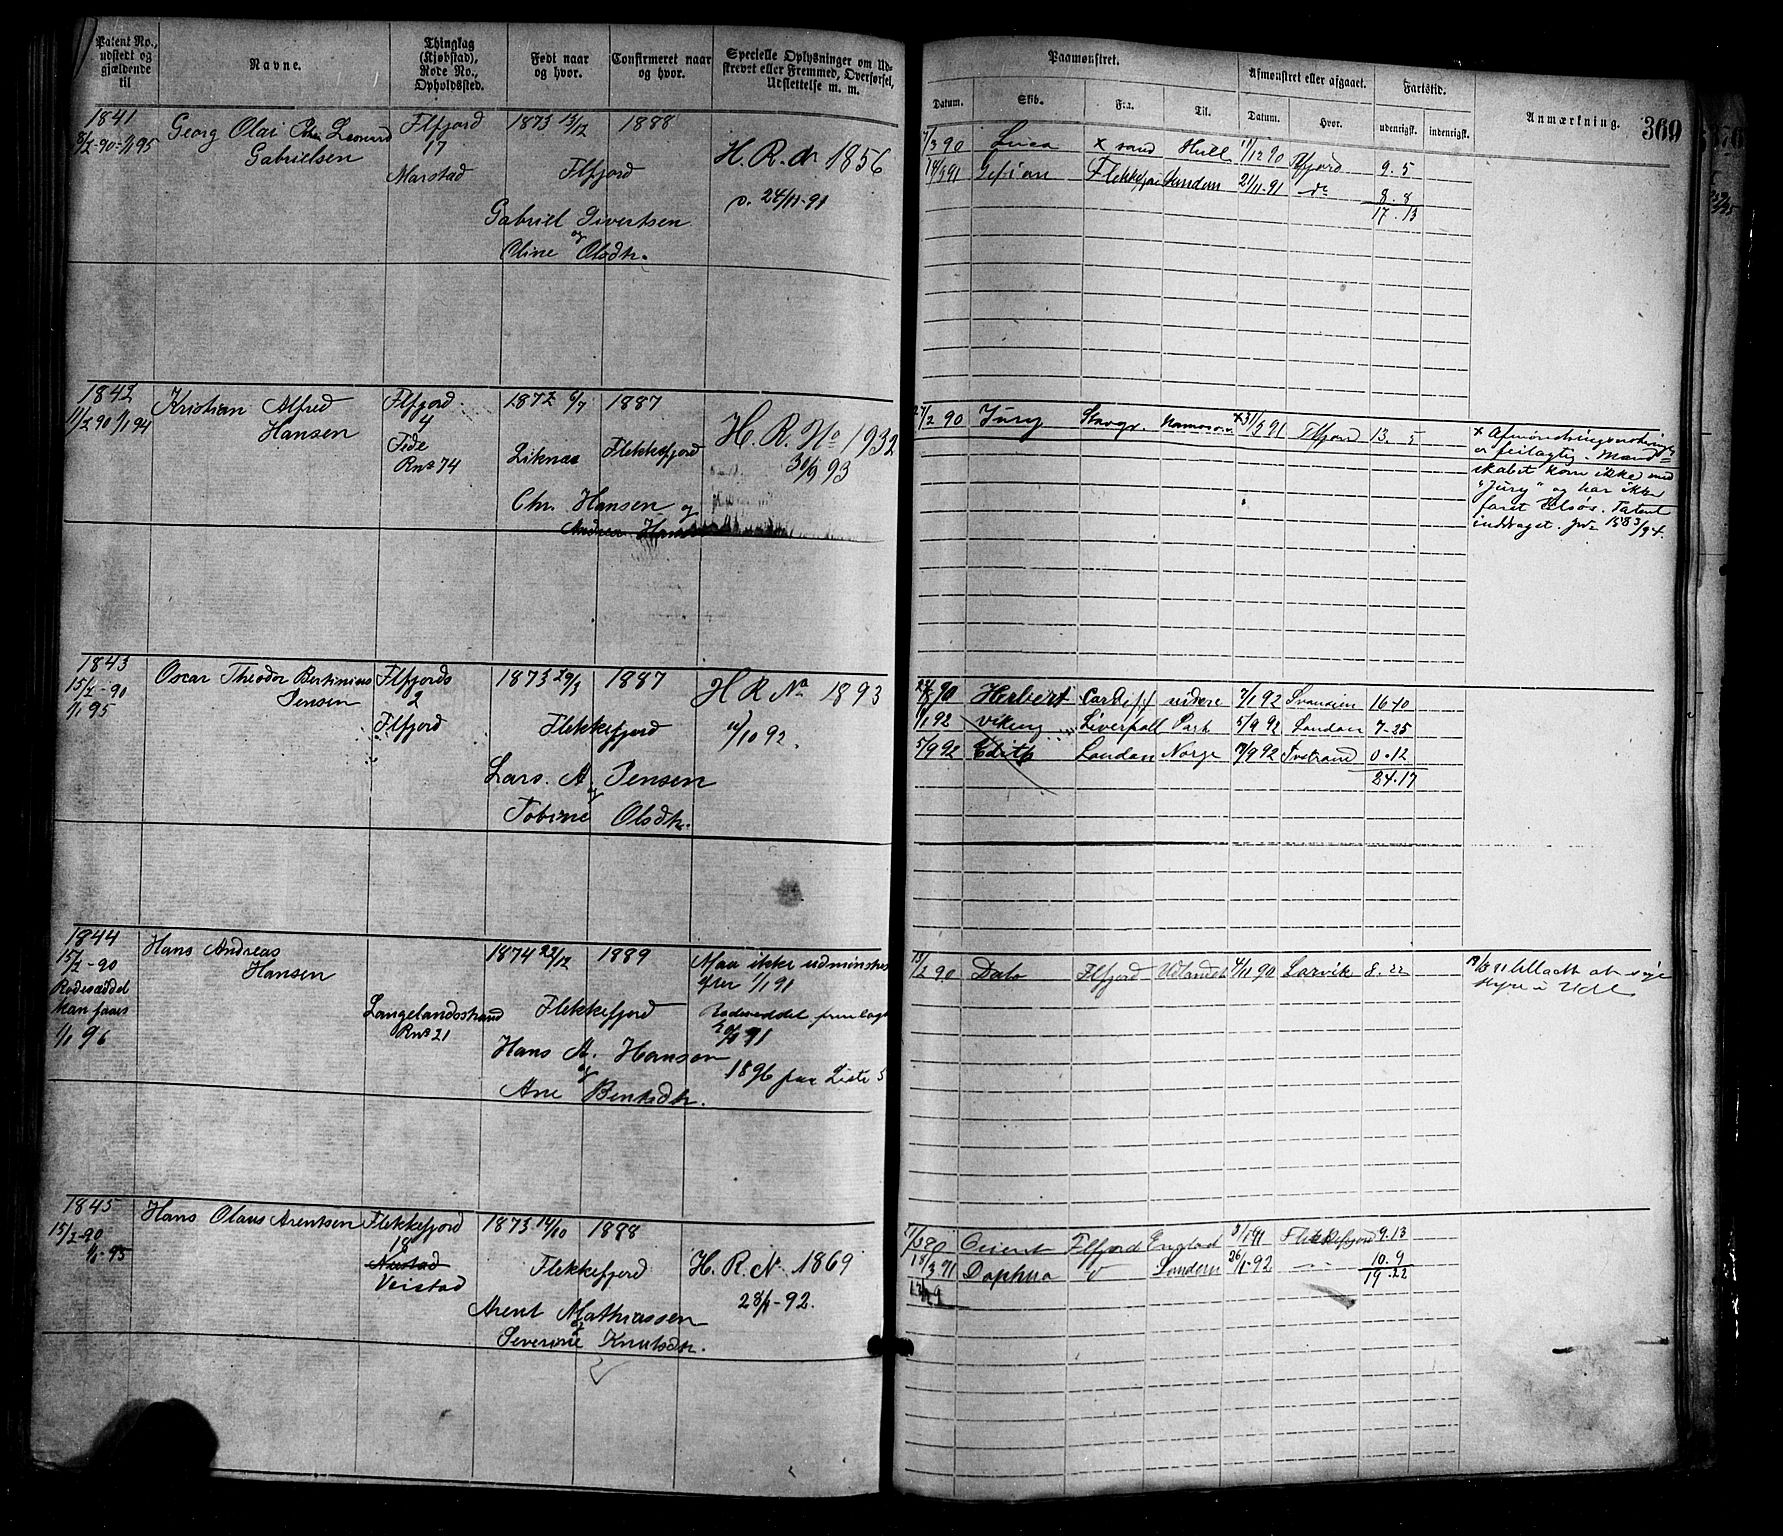 Patent No., udstedt og gjældende til
Navne.
Thinglag (Kjøbstad), Rode No., Opholdssted.
Født naar og hvor.
Confirmeret naar og hvor.
Specielle Oplysninger om Udskrevet eller Fremmed, Overførsel, Udslettelse m. m.
Paamønstret.
Datum.
Skib.
Fra.
Til.
Afmønstret eller afgaaet.
Datum.
Hvor.
Fartstid.
udenrigsk.
indenrigsk.
Anmærkning.
369
1841
8/2-90-1/1 95
Georg Olai Leonard
Gabrielsen
Flfjord
17
Marstad
1873 13/12
1888
Flfjord
Gabriel Sivertsen
og
Oline Olsdtr.
H. R. No 1856
24/11-91
7/3 90 Luca x sand Hull 17/12 90 Flfjord 9. 5
14/3 91 Gefion Flekkefjor London 21/11-91 do 8. 8
17. 13
1842
11/2 90 1/1 94
Kristian Alfred
Hansen
Flfjord
4
Fede
Rno 74
1872 6/7
1887
Liknæs
Flekkefjord
Chr. Hansen og
Andrea
H. R. No 1932
30/9 93
27/2 90 Jury Stavgr. x31/3 91 Flfjord 13. 5
x Afmønstringsnoteringen
er feilagtig. Mand
skabet kom ikke med
"Jury" og har ikke
faret tilsøs. Patent
inddraget. jvr 1583/94.
1843
15/2-90
1/1 95
Oscar Theodor Bertinius
Jensen
Flfjords
2
Flfjord
1873 29/3
1887
Flekkefjord
Lars. A. Jensen
og
Tobine Olsdtr.
H R No 1893
11/10 92.
Herbert Cardiff videre 7/1 92 Svansien 16-10
9/1 92 Viking Liverpoll Port 5/9 92 London 7-25
5/9 92 Edith London Norge 17/9 92 Tvstrand 0.12
24.17
1844
15/2-90
Rodeseddel
kan faaes
1/1 96
Hans Andreas
Hansen
Langelandsstrand
Rno 21
1874 22/12
1889
Flekkefjord
Hans A. Hansen
og
Ane Bentsdtr.
Maa ikke udmønstres
efter 1/1 91
Rodeseddel fremlagt
1896 paa Liste 5
15/2 90 Dato Flfjord Udlandet 4/11 90 Larvik 8. 22
tilladt at søge
Hyre i Udl
1845
15/2-90
1/1-95
Hans Olaus Arentsen
Flekkefjord
18
Veistad
1873 14/10
1888
Flekkefjord
Arent Mathiassen
og
Severine Knutsdtr.
H. R. No 1869
28/1-92.
7/3 90 Orient Flfjord Englad 3/1 91 Flekkefjord 9.13
18/3 91 Daphna London 26/1-92 10. 9
19. 22